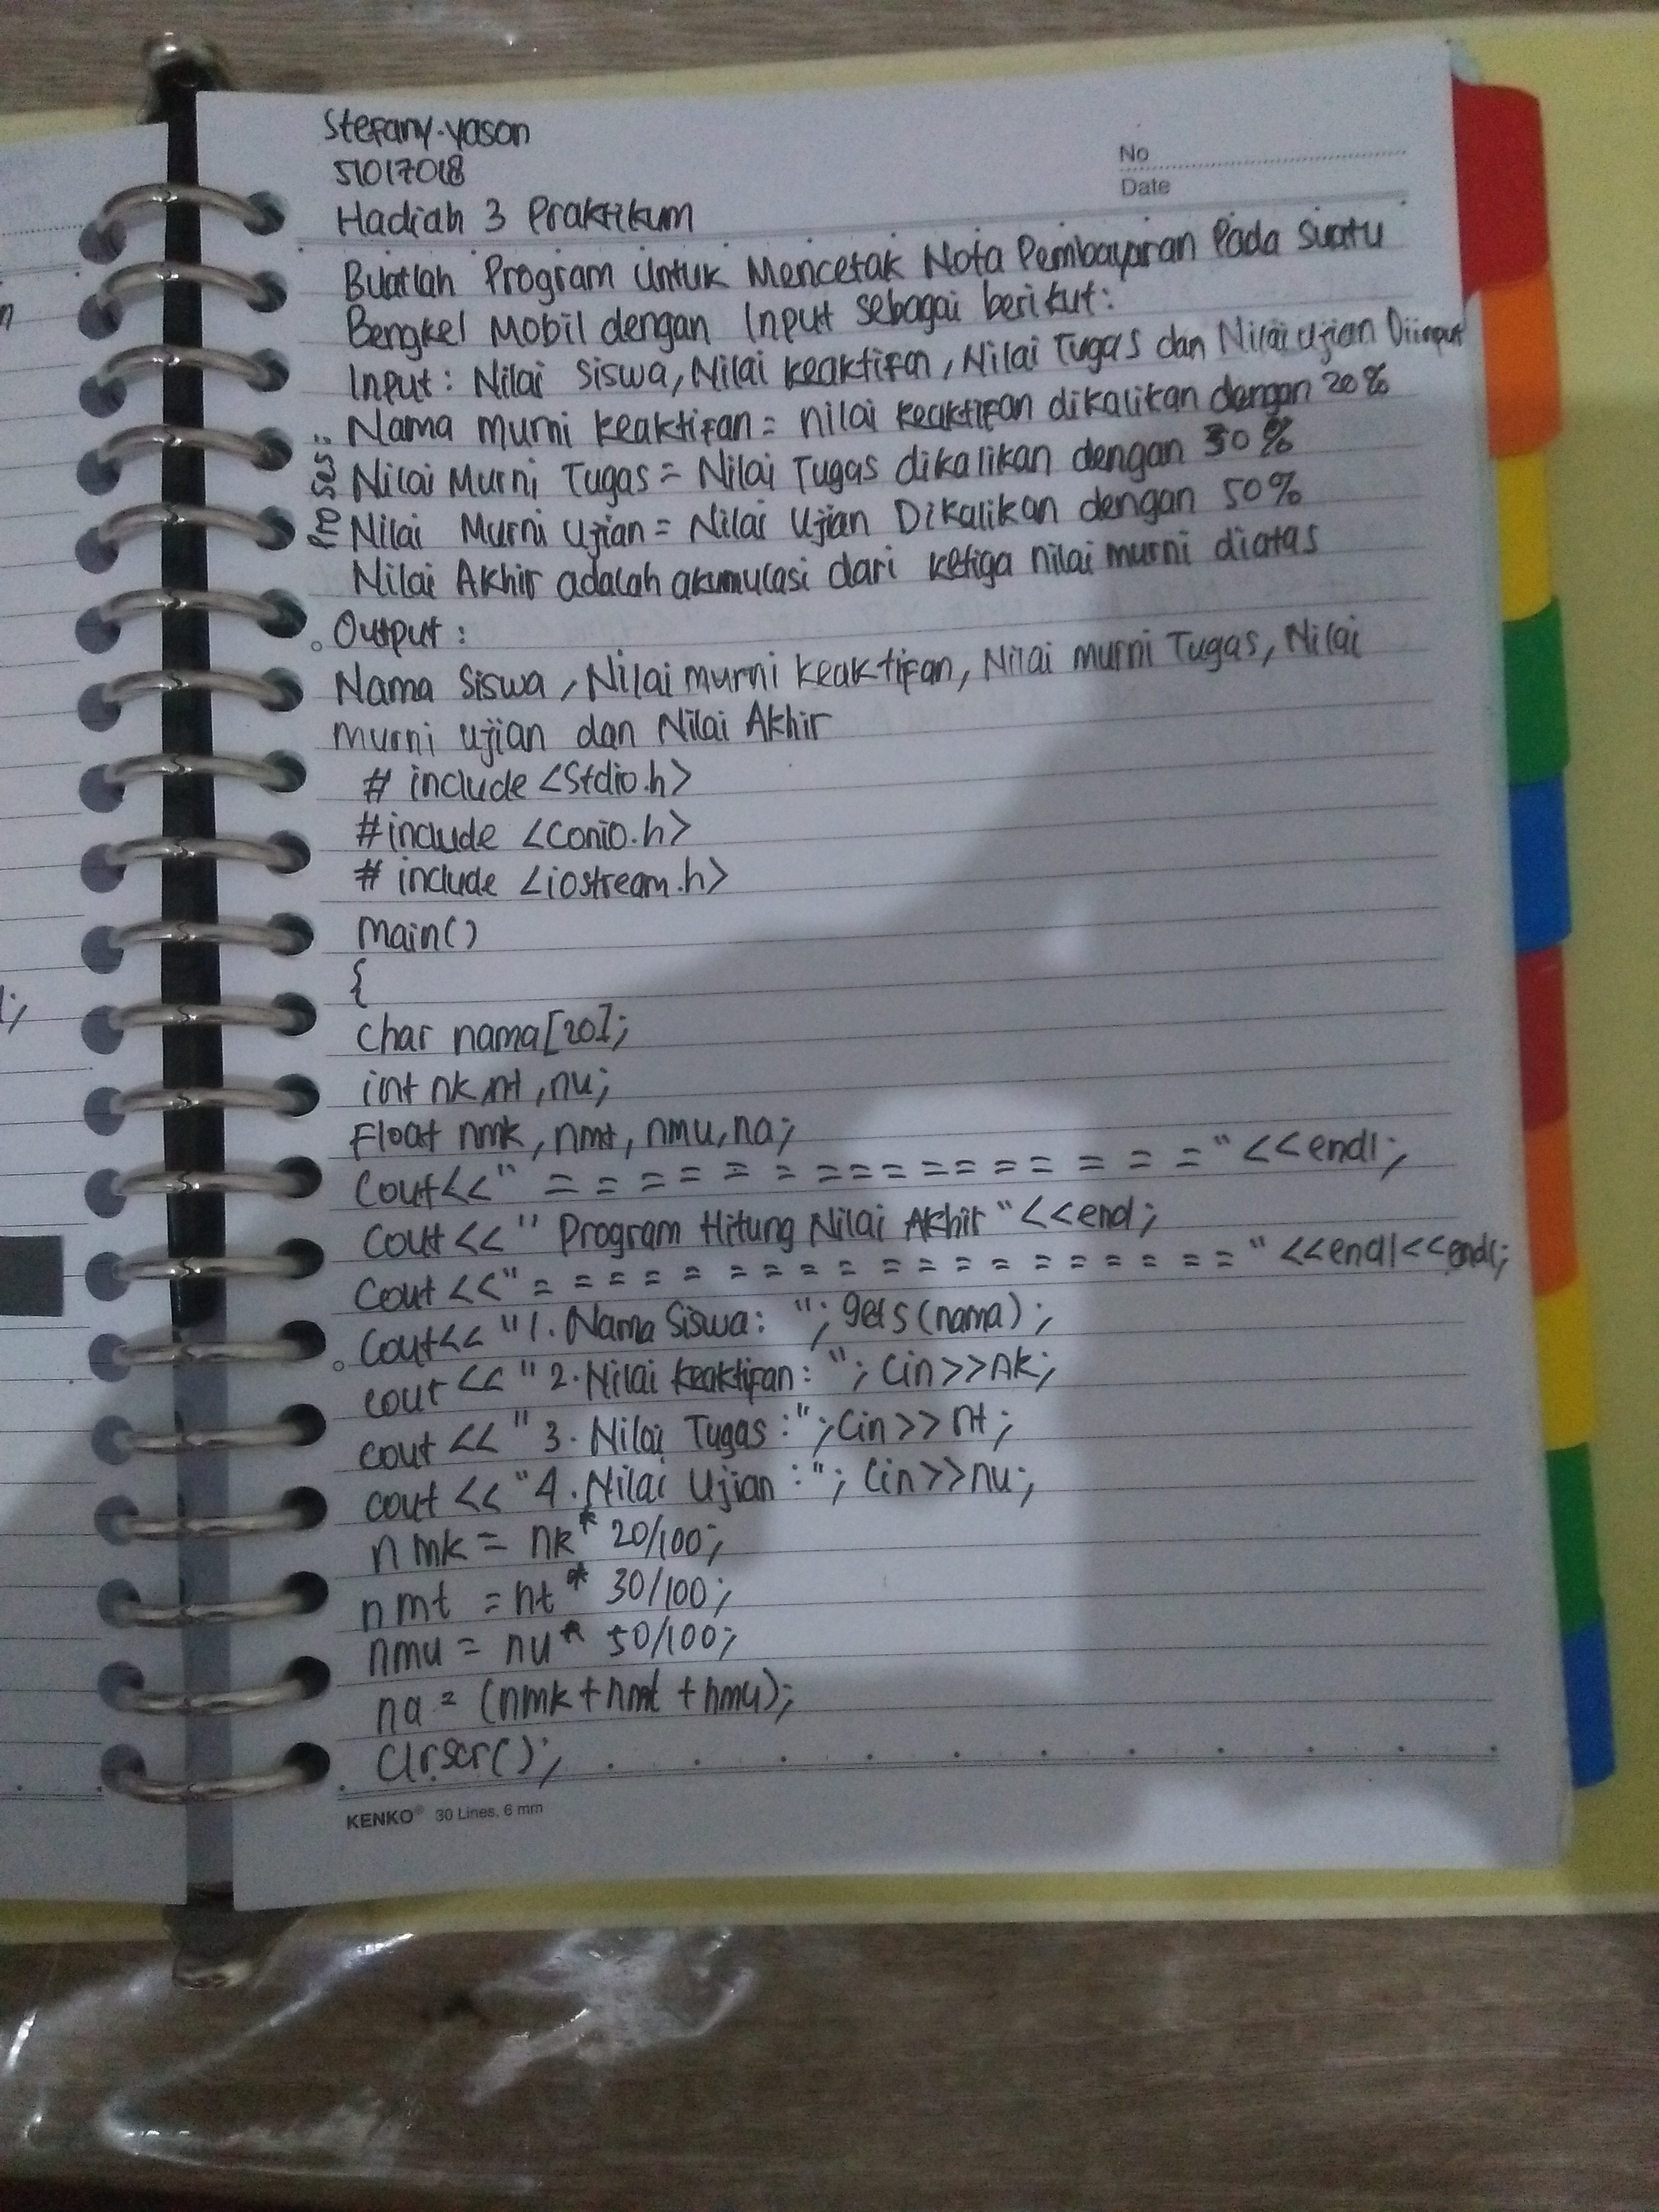 Stefany.yason
51017018
No
Date
Hadiah 3 Praktikum
Buatlah Program Untuk Mencetak Nota Pembayaran Pada suatu
Bengkel Mobil dengan Input sebagai berikut:
Input: Nilai Siswa, Nilai keaktifan, Nilai Tugas dan Nilai Ujian Diinput
Proses:
Nama murni keaktifan = nilai keaktifan dikalikan dengan 20%
Nilai Murni Tugas = Nilai Tugas dikalikan dengan 30%
Nilai Murni Ujian = Nilai Ujian Dikalikan dengan 50%
Nilai Akhir adalah akumulasi dari ketiga nilai murni diatas
Output :
Nama Siswa, Nilai murni keaktifan, Nilai murni Tugas, Nilai
murni ujian dan Nilai Akhir
# include <Stdio.h>
#include <conio.h>
# include <iostream.h>
main()
{
char nama[20];
int nk,nt,nu;
Float nmk, nmt, nmu, na;
Cout<<" = = = = = = = = = = = = = = = ="<<endl;
Cout<<" Program Hitung Nilai Akhir "<<end;
Cout<<" = = = = = = = = = = = = = = = = = ="<<endl<<endl;
Cout<< "1. Nama Siswa: "; gets (nama);
cout<< "2. Nilai keaktifan: "; Cin>>nk;
cout<< "3. Nilai Tugas :"; Cin>>nt;
cout<< "4. Nilai Ujian :"; Cin>>nu;
nmk = nk* 20/100;
nmt = nt* 30/100;
nmu = nu* 50/100;
na = (nmk+nmt +nmu);
Clrscr();
KENKO® 30 Lines, 6 mm